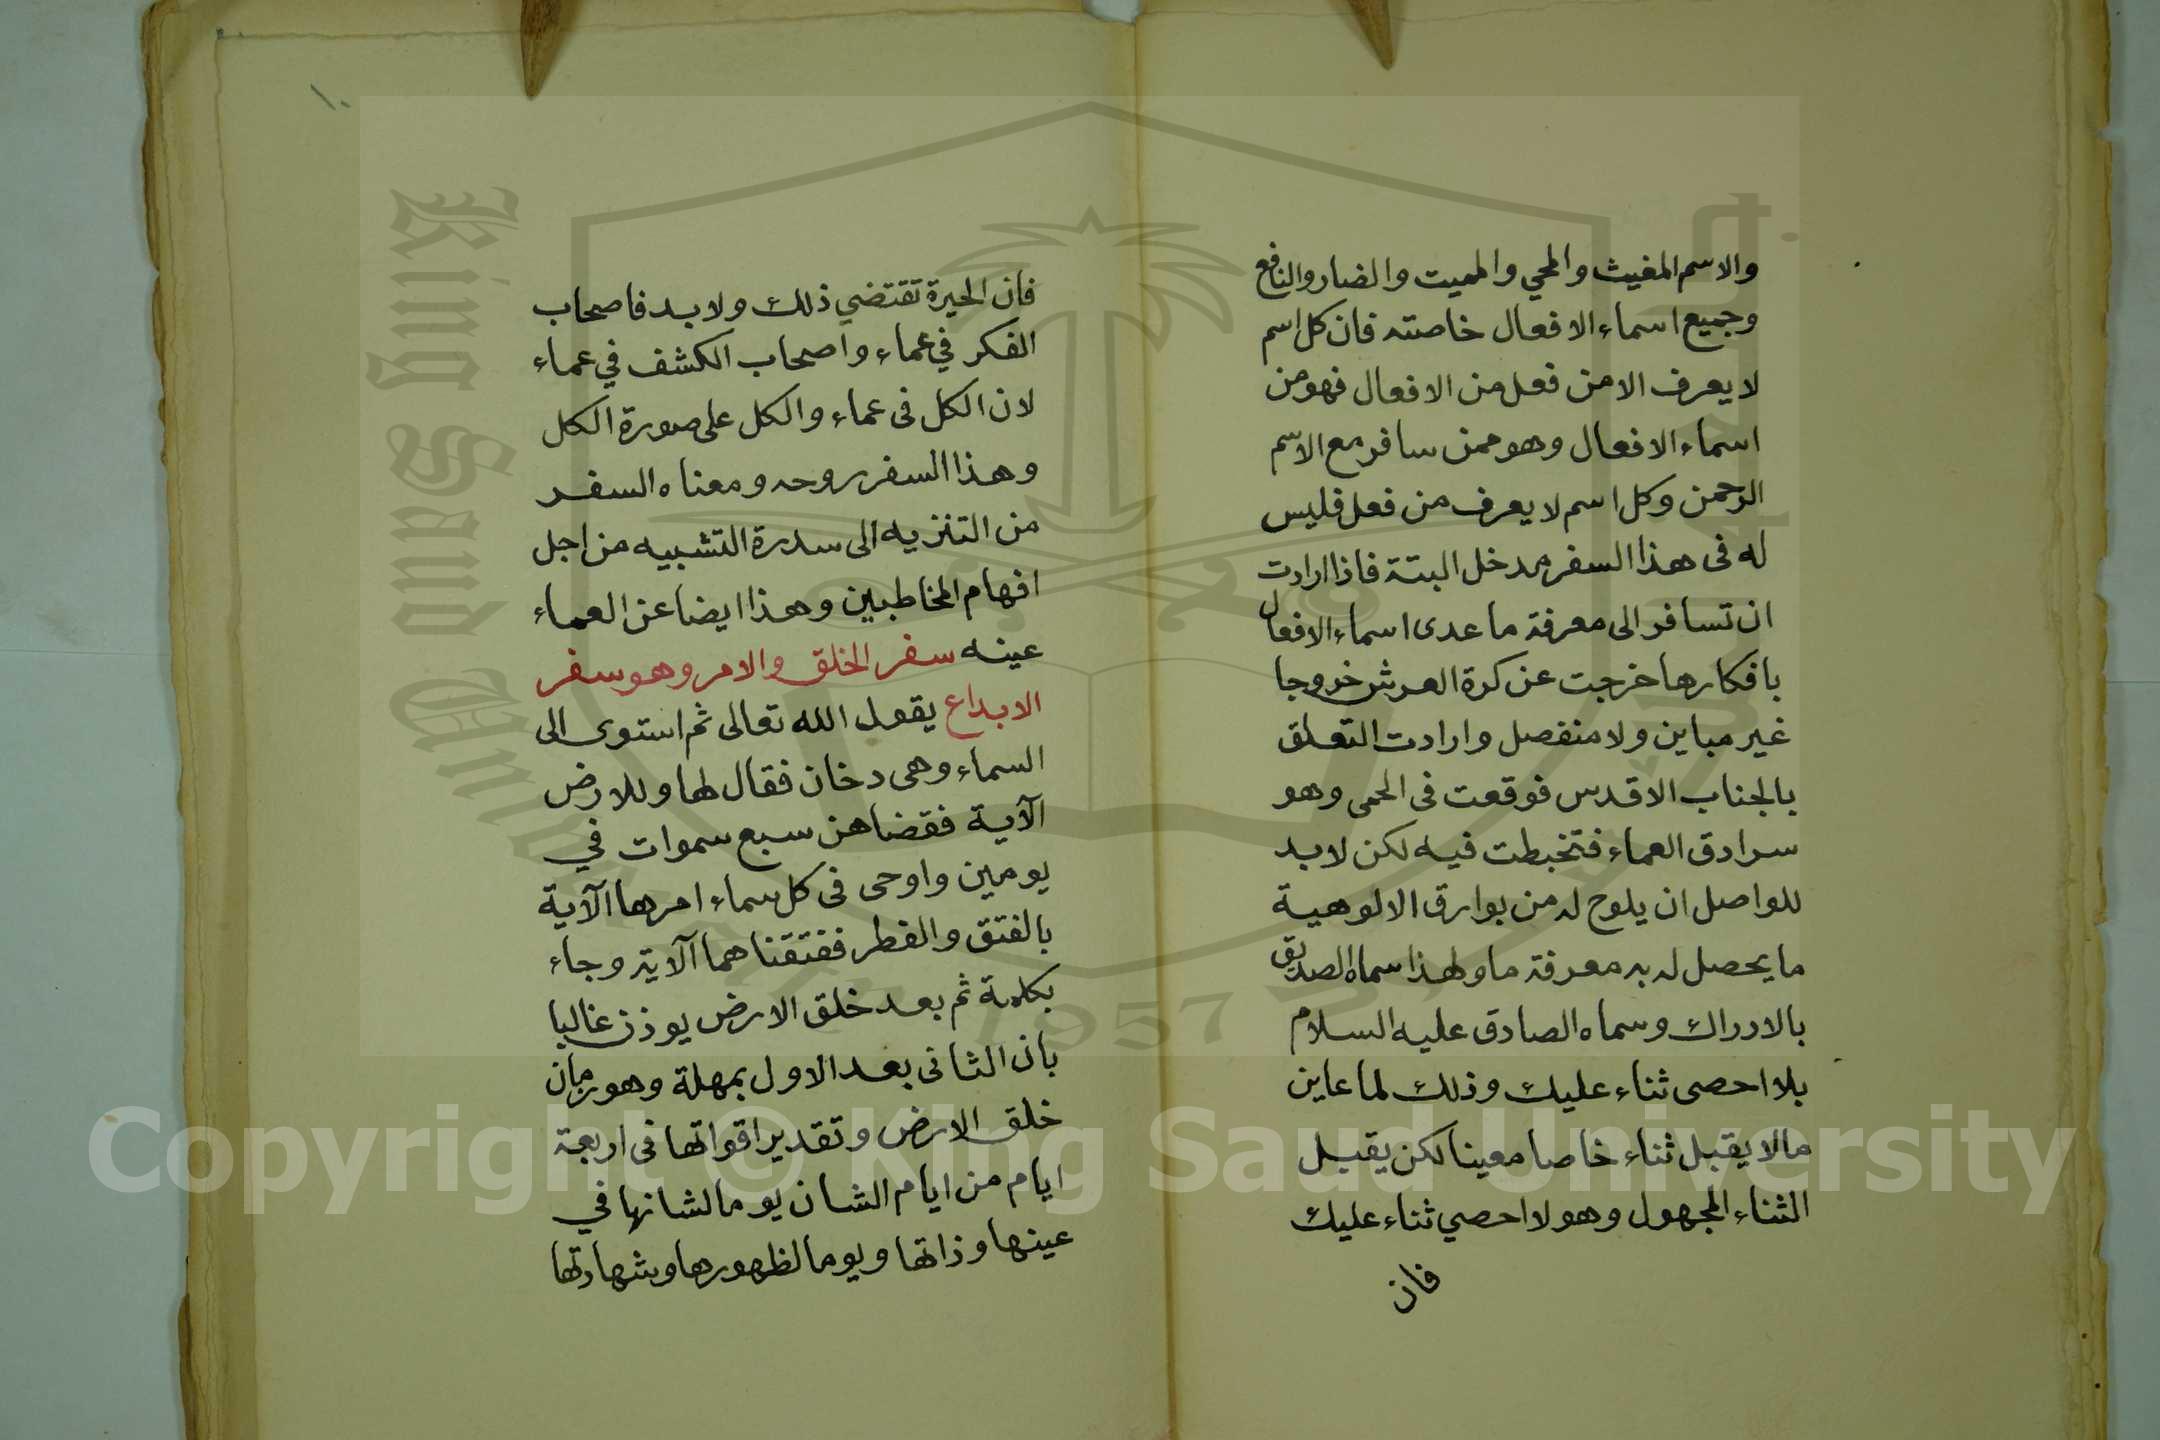 والاسم المغيث والمحي والمميت والضار والنافع
وجميع اسماء الافعال خاصته فان كل اسم
لا يعرف الا من فعل من الافعال فهو من
اسماء الافعال وهو ممن سافر مع الاسم
الرحمن وكل اسم لا يعرف من فعل فليس
له فى هذا السفر مدخل البتة فاذا ارادت
ان تسافر الى معرفة ما عدى اسماء الافعال
بافكارها خرجت عن كرة العرش خروجا
غير مباين ولا منفصل وارادت التعلق
بالجناب الاقدس فوقعت فى الحمى وهو
سرادق العماء فتخبطت فيه لكن لا بد
للواصل ان يلوح له من بوارق الالوهية
ما يحصل له به معرفة ما ولهذا سماه الصديق
بالادراك وسماه الصادق عليه السلام
بلا احصى ثناء عليك وذلك لما عاين
مالا يقبل ثناء خاصا معينا لكن يقبل
الثناء المجهول وهو لا احصي ثناء عليك
فان
١٠
فان الحيرة تقتضي ذلك ولا بد فاصحاب
الفكر في عماء واصحاب الكشف في عماء
لان الكل فى عماء والكل على صورة الكل
وهذا السفر روحه ومعناه السفر
من التنزيه الى سدرة التشبيه من اجل
افهام المخاطبين وهذا ايضا عن العماء
عينه سفر الخلق والامر وهو سفر
الابداع يقول الله تعالى ثم استوى الى
السماء وهى دخان فقال لها وللارض
الآية فقضاهن سبع سموات في
يومين واوحى فى كل سماء امرها الآية
بالفتق والفطر ففتقناهما الآية وجاء
بكلمة ثم بعد خلق الارض يوذن غالبا
بان الثانى بعد الاول بمهلة وهو زمان
خلق الارض وتقدير اقواتها فى اربعة
ايام من ايام الشان يوما لشانها في
عينها وذاتها ويوما لظهورها وشهادتها
King Saud University
1957
Copyright © King Saud University